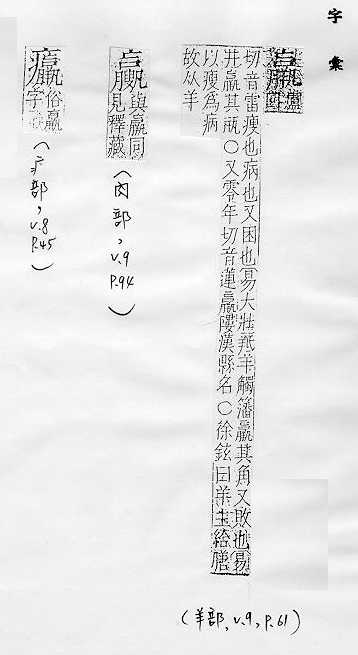 字彙
羸
切音雷瘦也病也又困也易大壯羝羊觸藩羸其角又敗也易
井羸其瓶〇又零年切音蓮羸漢縣名〇徐鉉曰羊主給膳
以瘦爲病故从羊
(羊部, v.9, p.61)
與羸同
見釋藏
(内部, v.9 p.94)
俗羸
字
(疒部, v.8 p.45)